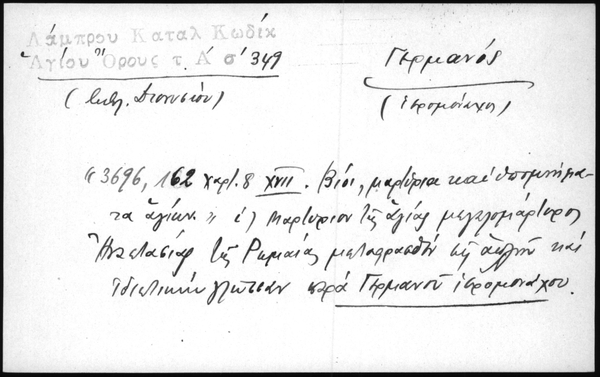 Λάμπρου Καταλ Κωδίκ
Ἁγίου Ὄρους τ. Α΄ σ΄ 349
Γερμανός
(βιβλ. Διονυσίου)
(ἱερομόναχος)
"3696, 162 χαρτ. 8 XVII. Βίοι, μαρτύρια καὶ ὑπομνήμα-
τα ἁγίων." Μαρτύριον τῆς ἁγίας μεγαλομάρτυρος
Ἀναστασίας τῆς Ῥωμαίας μεταφρασθὲν εἰς ἁπλῆν καὶ
ἰδιωτικὴν γλῶσσαν παρὰ Γερμανοῦ ἱερομονάχου.